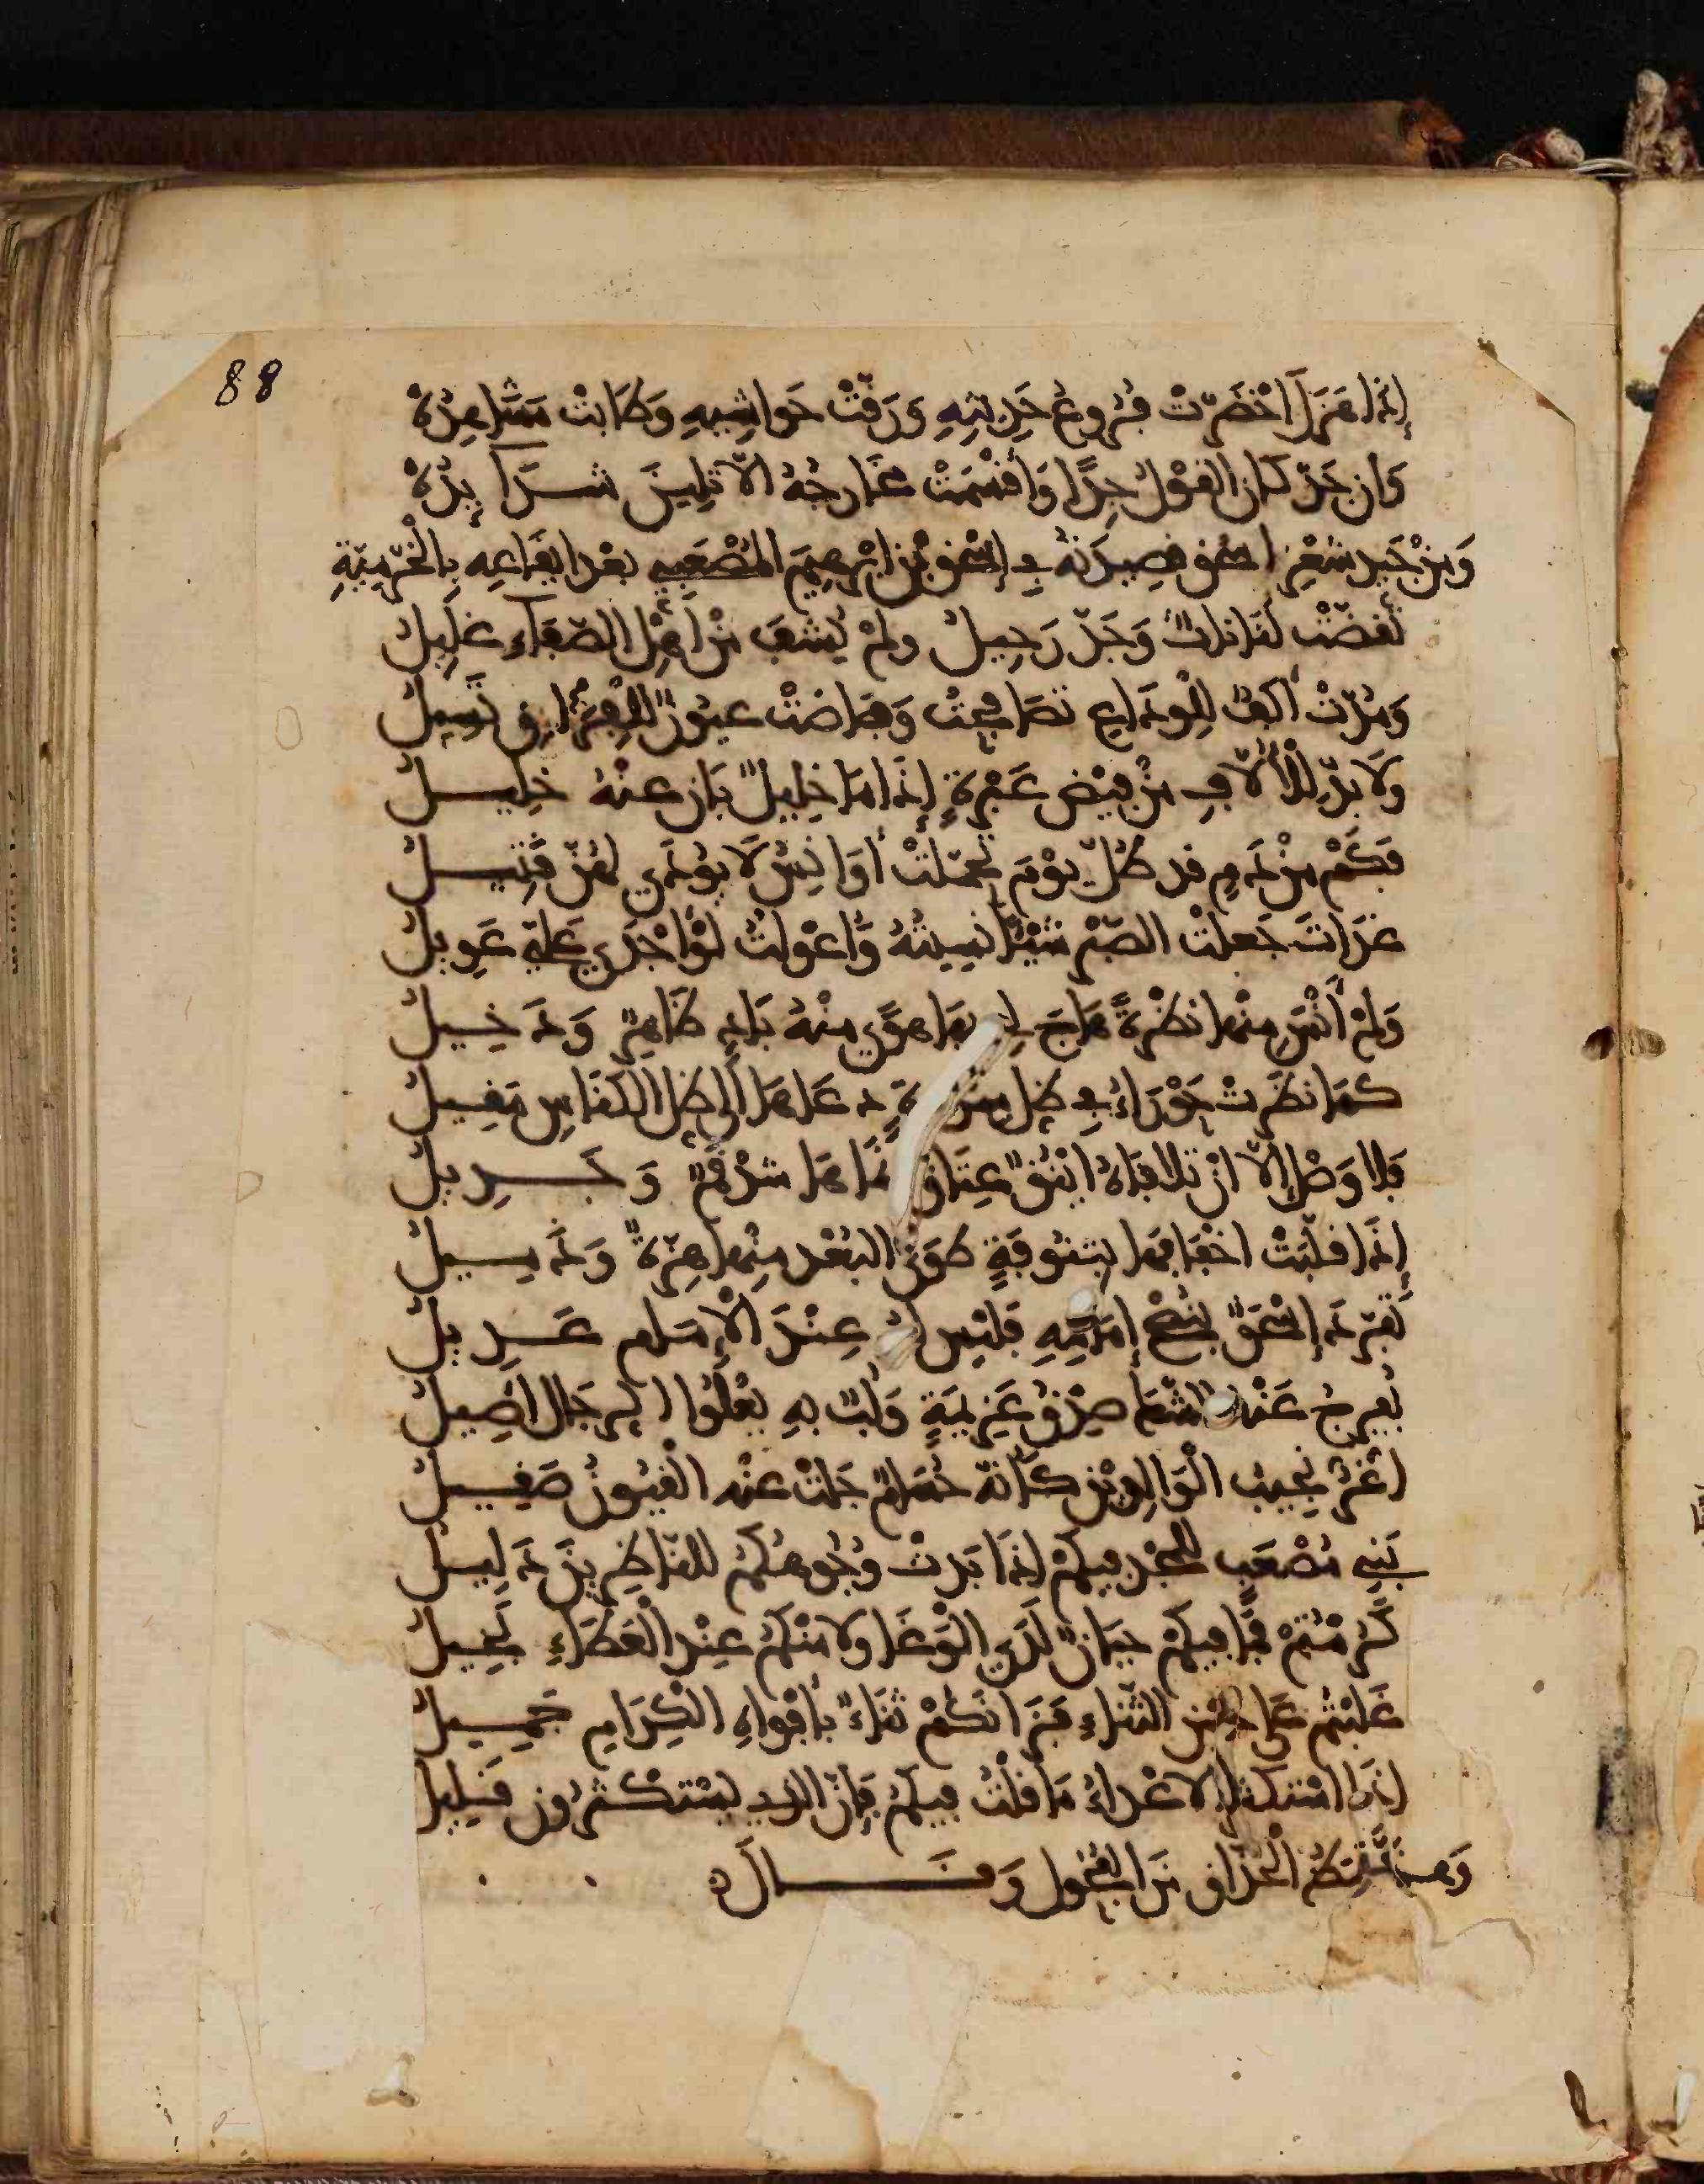 88
إِذَا هَزَلَ اخْضَرَّتْ فُرُوعُ حَدِيثِهِ وَرَقَّتْ حَوَاشِيهِ وَطَابَتْ مَشَاهِدُهْ
وَإن جَدَّ كان القَوْلُ جِدًّا وَأَقْسَمَتْ مَخَارِجُهُ ألّا تَلِينَ شَدَآئِدُهْ
وَمِنْ جَيد شعْرِ اسحٰق قصِيدَتهُ في إسْحٰق بْنِ ابْرٰهِيمَ المُصْعَبِي بعْد ايقَاعِهِ بِالْخُرَّمِيّةِ
تقضّتْ لُبَانَاتٌ وَجَدّ رَحِيلُ ولمْ يُشفَ مِنْ اهْلِ الصّفَآءِ غلِيلُ
وَمُدّتْ أكفٌّ لِلْوِدَاعِ تصَافحَتْ وَفَاضَتْ عيُونٌ لِلْفِرَاقِ تَسِيلُ
ولَا بدّ لِلْأُلّافِ مِنْ فيْضِ عَبْرَةٍ إِذَا مَا خَلِيلٌ بَانَ عنْهُ خلِيلُ
فكَمْ مِنْ دَمٍ قد طُلّ يوْمَ تحَمّلتْ أوَانِسُ لَا يُودَى لهُنّ قَتِيلُ
غدَاةَ جَعلْتُ الصّبْرَ شيْئًا نسِيتُهُ وَأعْوَلتُ لوْ أجْدَى عَليّ عَوِيلُ
وَلمْ أنْسَ مِنْها نظْرَةً هَاجَ لِي بهَا هوًى مِنْهُ بَادٍ ظَاهِرٌ وَدَخِيلُ
كمَا نظَرَتْ حَوْرَاءُ في ظِل سِدْرَةٍ دعَاهَا إلى ظِلّ الكنَاسِ مَقِيلُ
فلا وَصْلَ إلّا انْ تلافَاهُ أيْنُقٌ عِتَاق نمَاهَا شدْقَمٌ وَجَدِيلُ
إِذَا قلبَتْ اخْفَافهَا بتنُوفَةٍ طوَى البُعْد مِنْها هِزّةٌ وَذَمِيلُ
تفَرّدَ إسْحٰقٌ بنُصْحِ إمَامِهِ فليْسَ لهُ عِنْدَ الْإِمَامِ عَدِيلُ
يُفرجُ عَنْه الشّكَّ صِدْقُ عَزِيمَةٍ وَلُبٌّ بهِ يعْلُوا الرجَالَ أصِيلُ
اغَرّ نجِيبُ الْوَالِديْنِ كأنّهُ حُسَامٌ جَلتْ عنْه الْقيُونُ صَقِيلُ
بَنِي مُصْعَبٍ للْمَجْدِ فيكمْ إذَا بَدتْ وُجُوهكُمُ للنّاظِرِينَ دَلِيلُ
كرُمْتُمْ فمَا فيكمْ جبَانٌ لَدَى الْوَغَا ولا مِنْكُمُ عِنْد الْعَطَاءِ بخِيلُ
غَلبْتُمْ عَلى حسْنِ الثّنَاءِ فزَانكُمْ ثنَاءٌ بأفْوَاهِ الكِرَامِ جَمِيلُ
إذَا استكثرَ الاعْداءُ مَا قلْتُ فيكُمُ فإنّ الذي يسْتكْثرُون قلِيلُ
وَهذَا نَمَطُ الحُذّاقِ مِنَ الفُحُولِ وَقالَ